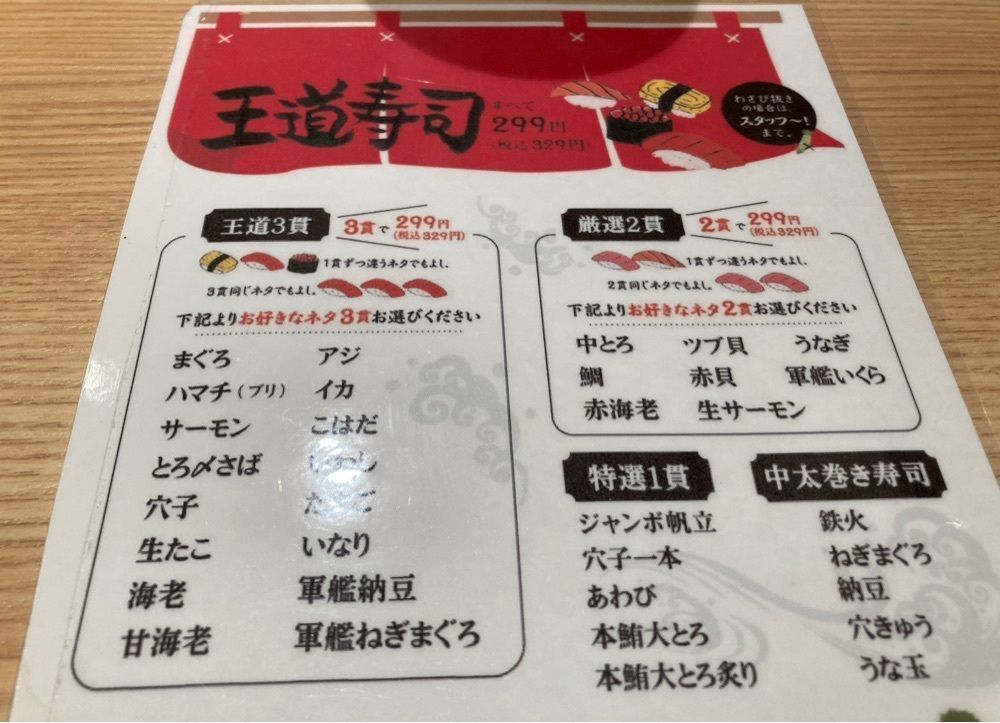 王道寿司
すべて
299円
(税込329円)
わさび抜き
の場合は、
スタッフ〜!
まで。
王道3貫
3貫で299円
(税込329円)
1貫ずつ違うネタでもよし、
3貫同じネタでもよし。
下記よりお好きなネタ3貫お選びください
まぐろ アジ
ハマチ(ブリ) イカ
サーモン こはだ
とろ〆さば いわし
穴子 たまご
生たこ いなり
海老 軍艦納豆
甘海老 軍艦ねぎまぐろ
厳選2貫
2貫で299円
(税込329円)
1貫ずつ違うネタでもよし、
2貫同じネタでもよし。
下記よりお好きなネタ2貫お選びください
中とろ ツブ貝 うなぎ
鯛 赤貝 軍艦いくら
赤海老 生サーモン
特選1貫
ジャンボ帆立
穴子一本
あわび
本鮪大とろ
本鮪大とろ炙り
中太巻き寿司
鉄火
ねぎまぐろ
納豆
穴きゅう
うな玉